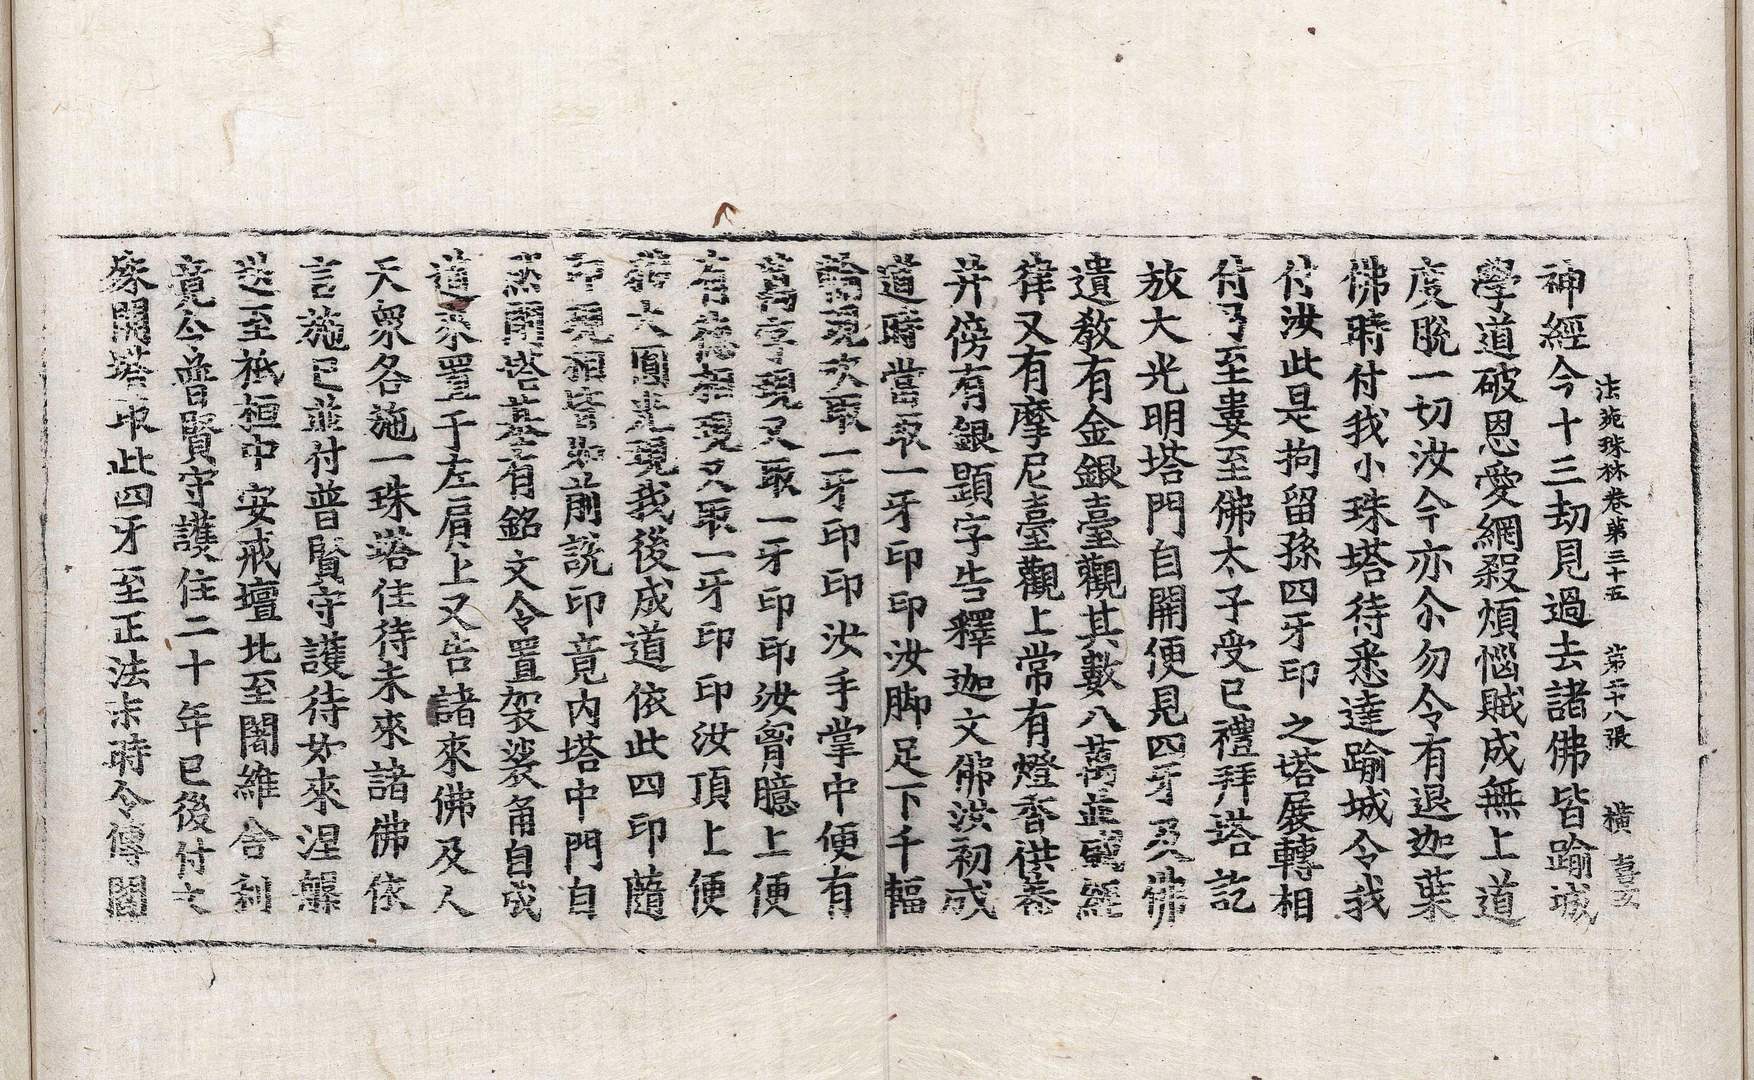 法苑珠林卷第三十五　第二十八張　横
神經今十三劫見過去諸佛皆踰城
學道破恩愛網殺煩惱賊成無上道
度脫一切汝今亦尒勿令有退迦葉
佛時付我小珠塔待悉達踰城令我
付汝此是拘留孫四牙印之塔展轉相
付乃至婁至佛太子受已禮拜塔訖
放大光明塔門自開便見四牙及佛
遺教有金銀臺觀其數八萬並盛經
律又有摩尼臺觀上常有燈香供養
并傍有銀題字告釋迦文佛汝初成
道時當取一牙印印汝脚足下千輻
輪現次取一牙印印汝手掌中便有
萬字現又取一牙印印汝胷臆上便
有德相現又取一牙印印汝頂上便
我大圓光現我後成道依此四印隨
印現相皆如前說印竟內塔中門自
然開塔基有銘文令置袈裟角自成
道來置于左肩上又告諸來佛及人
天衆各施一珠塔住待未來諸佛依
言施已並付普賢守護待如來涅槃
送至祇桓中安戒壇北至闍維舍利
竟公普賢守護住二十年已後付文
殊開塔取此四牙至正法末時令傳閻